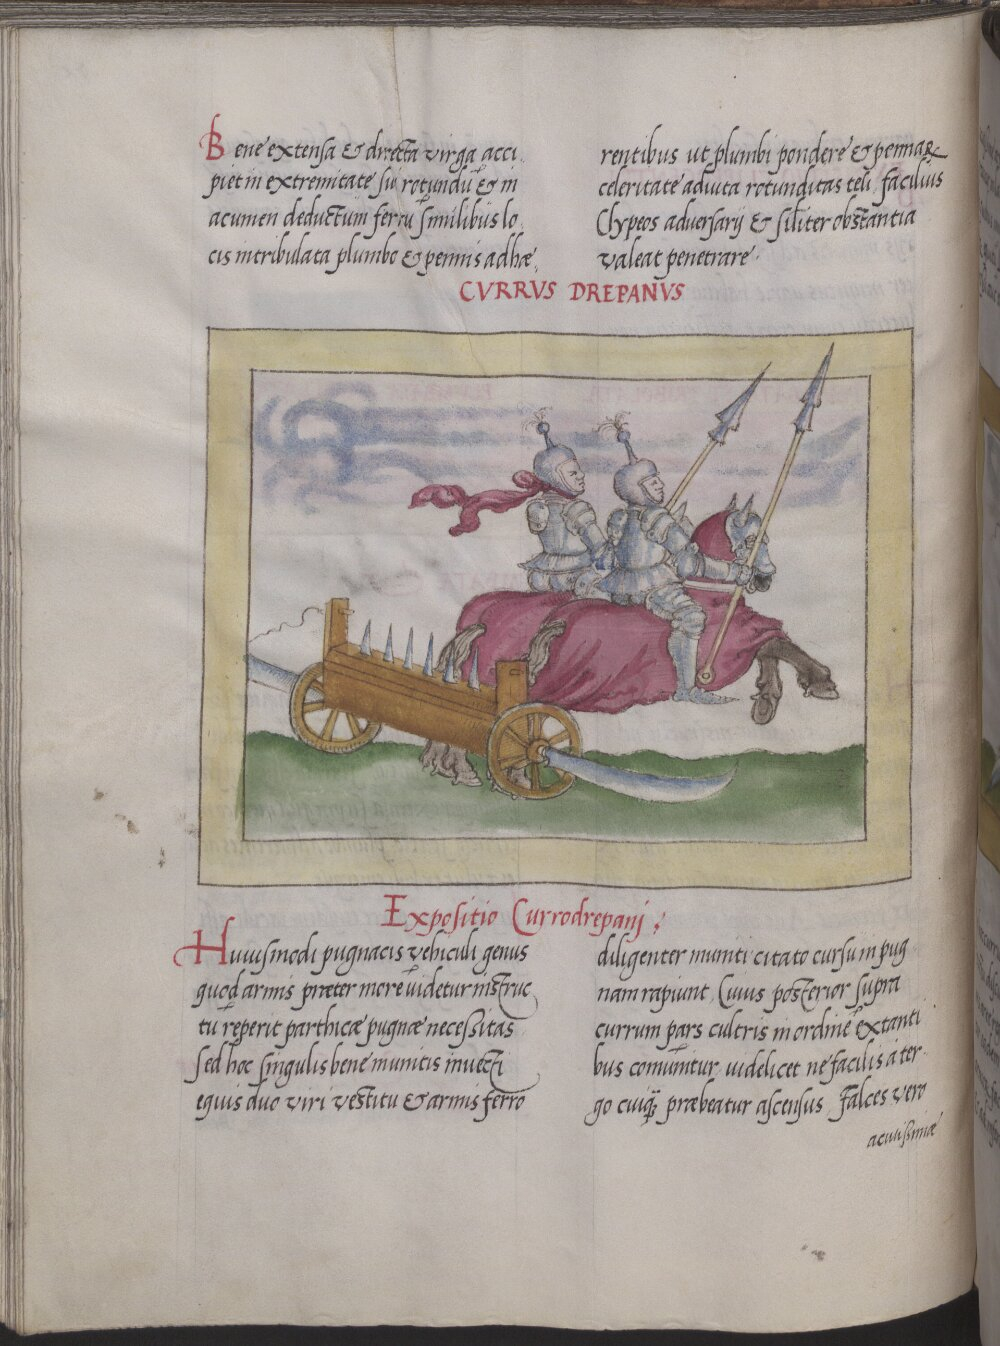 Bene extensa & directa virga acci
piet in extremitate sui rotundū & in
acumen deductum ferrū similibus lo
cis intribulata plumbo & pennis adhæ
rentibus ut plumbi pondere & pennaꝝ
celeritate adiuta rotunditas teli facilius
Clypeos adversarij & siliter obstantia
valeat penetrare.
CVRRVS DREPANVS
Expositio Currodrepani:
Huiusmodi pugnacis vehiculi genus
quod armis præter morē videtur instruc
tū reperit parthicæ pugnæ necessitas
sed hoc singulis bene munitis invecti
equis duo viri vestitu & armis ferro
diligenter muniti citato cursu in pug
nam rapiunt Cuius posterior supra
currum pars cultris in ordinē extanti
bus comunitur videlicet ne facilis a ter
go cuiqꝫ præbeatur ascensus Falces vero
acutissimæ